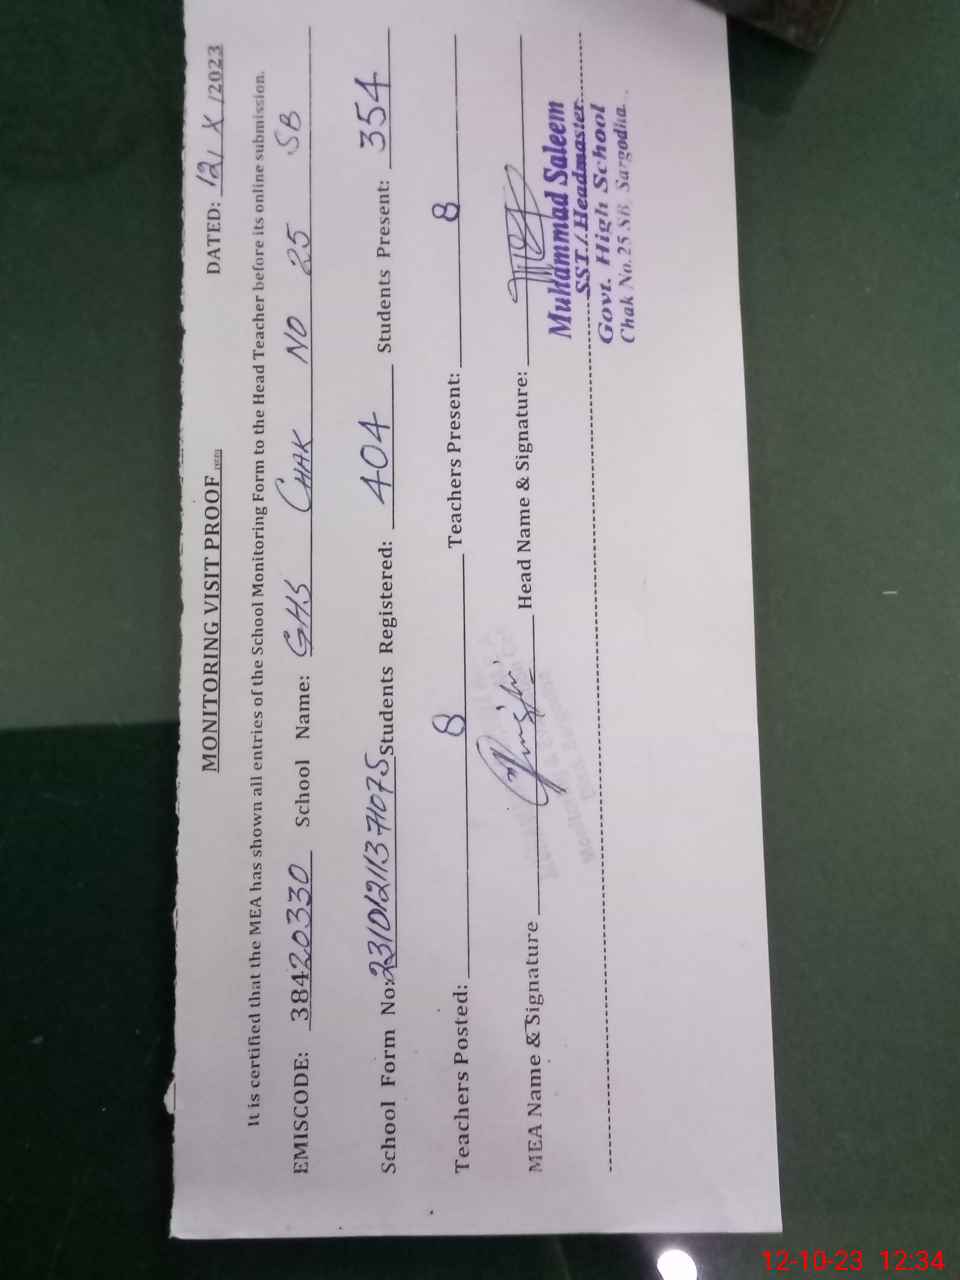 MONITORING VISIT PROOF
DATED: 12/ X /2023
It is certified that the MEA has shown all entries of the School Monitoring Form to the Head Teacher before its online submission.
EMISCODE: 38420330 School Name: GHS CHAK NO 25 SB
School Form No: Students Registered: 404 Students Present: 354
Teachers Posted: 8 Teachers Present: 8
MEA Name & Signature Head Name & Signature:
Muhammad Saleem
SST./Headmaster
Govt. High School
Chak No.25 SB, Sargodha
12-10-23 12:34